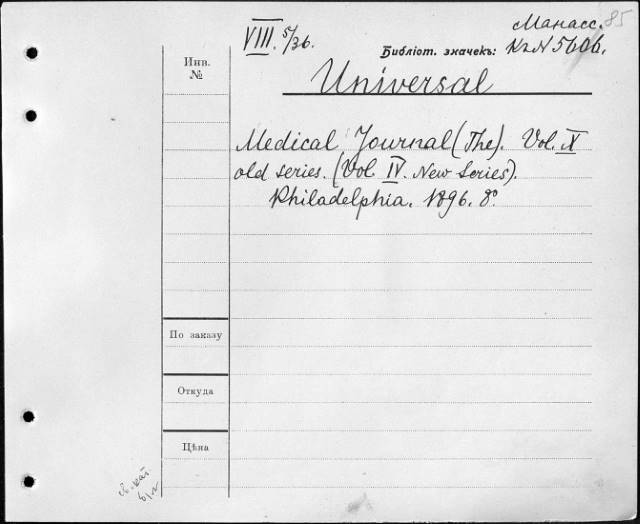 Манасс. 85
VIII. 5/36.
Библіот. значекъ: К2N 5606.
Инв.
№
Universal
Medical Journal (The). Vol. X
old series. (Vol IV. New Series).
Philadelphia. 1896. 8°.
По заказу
Откуда
Цѣна